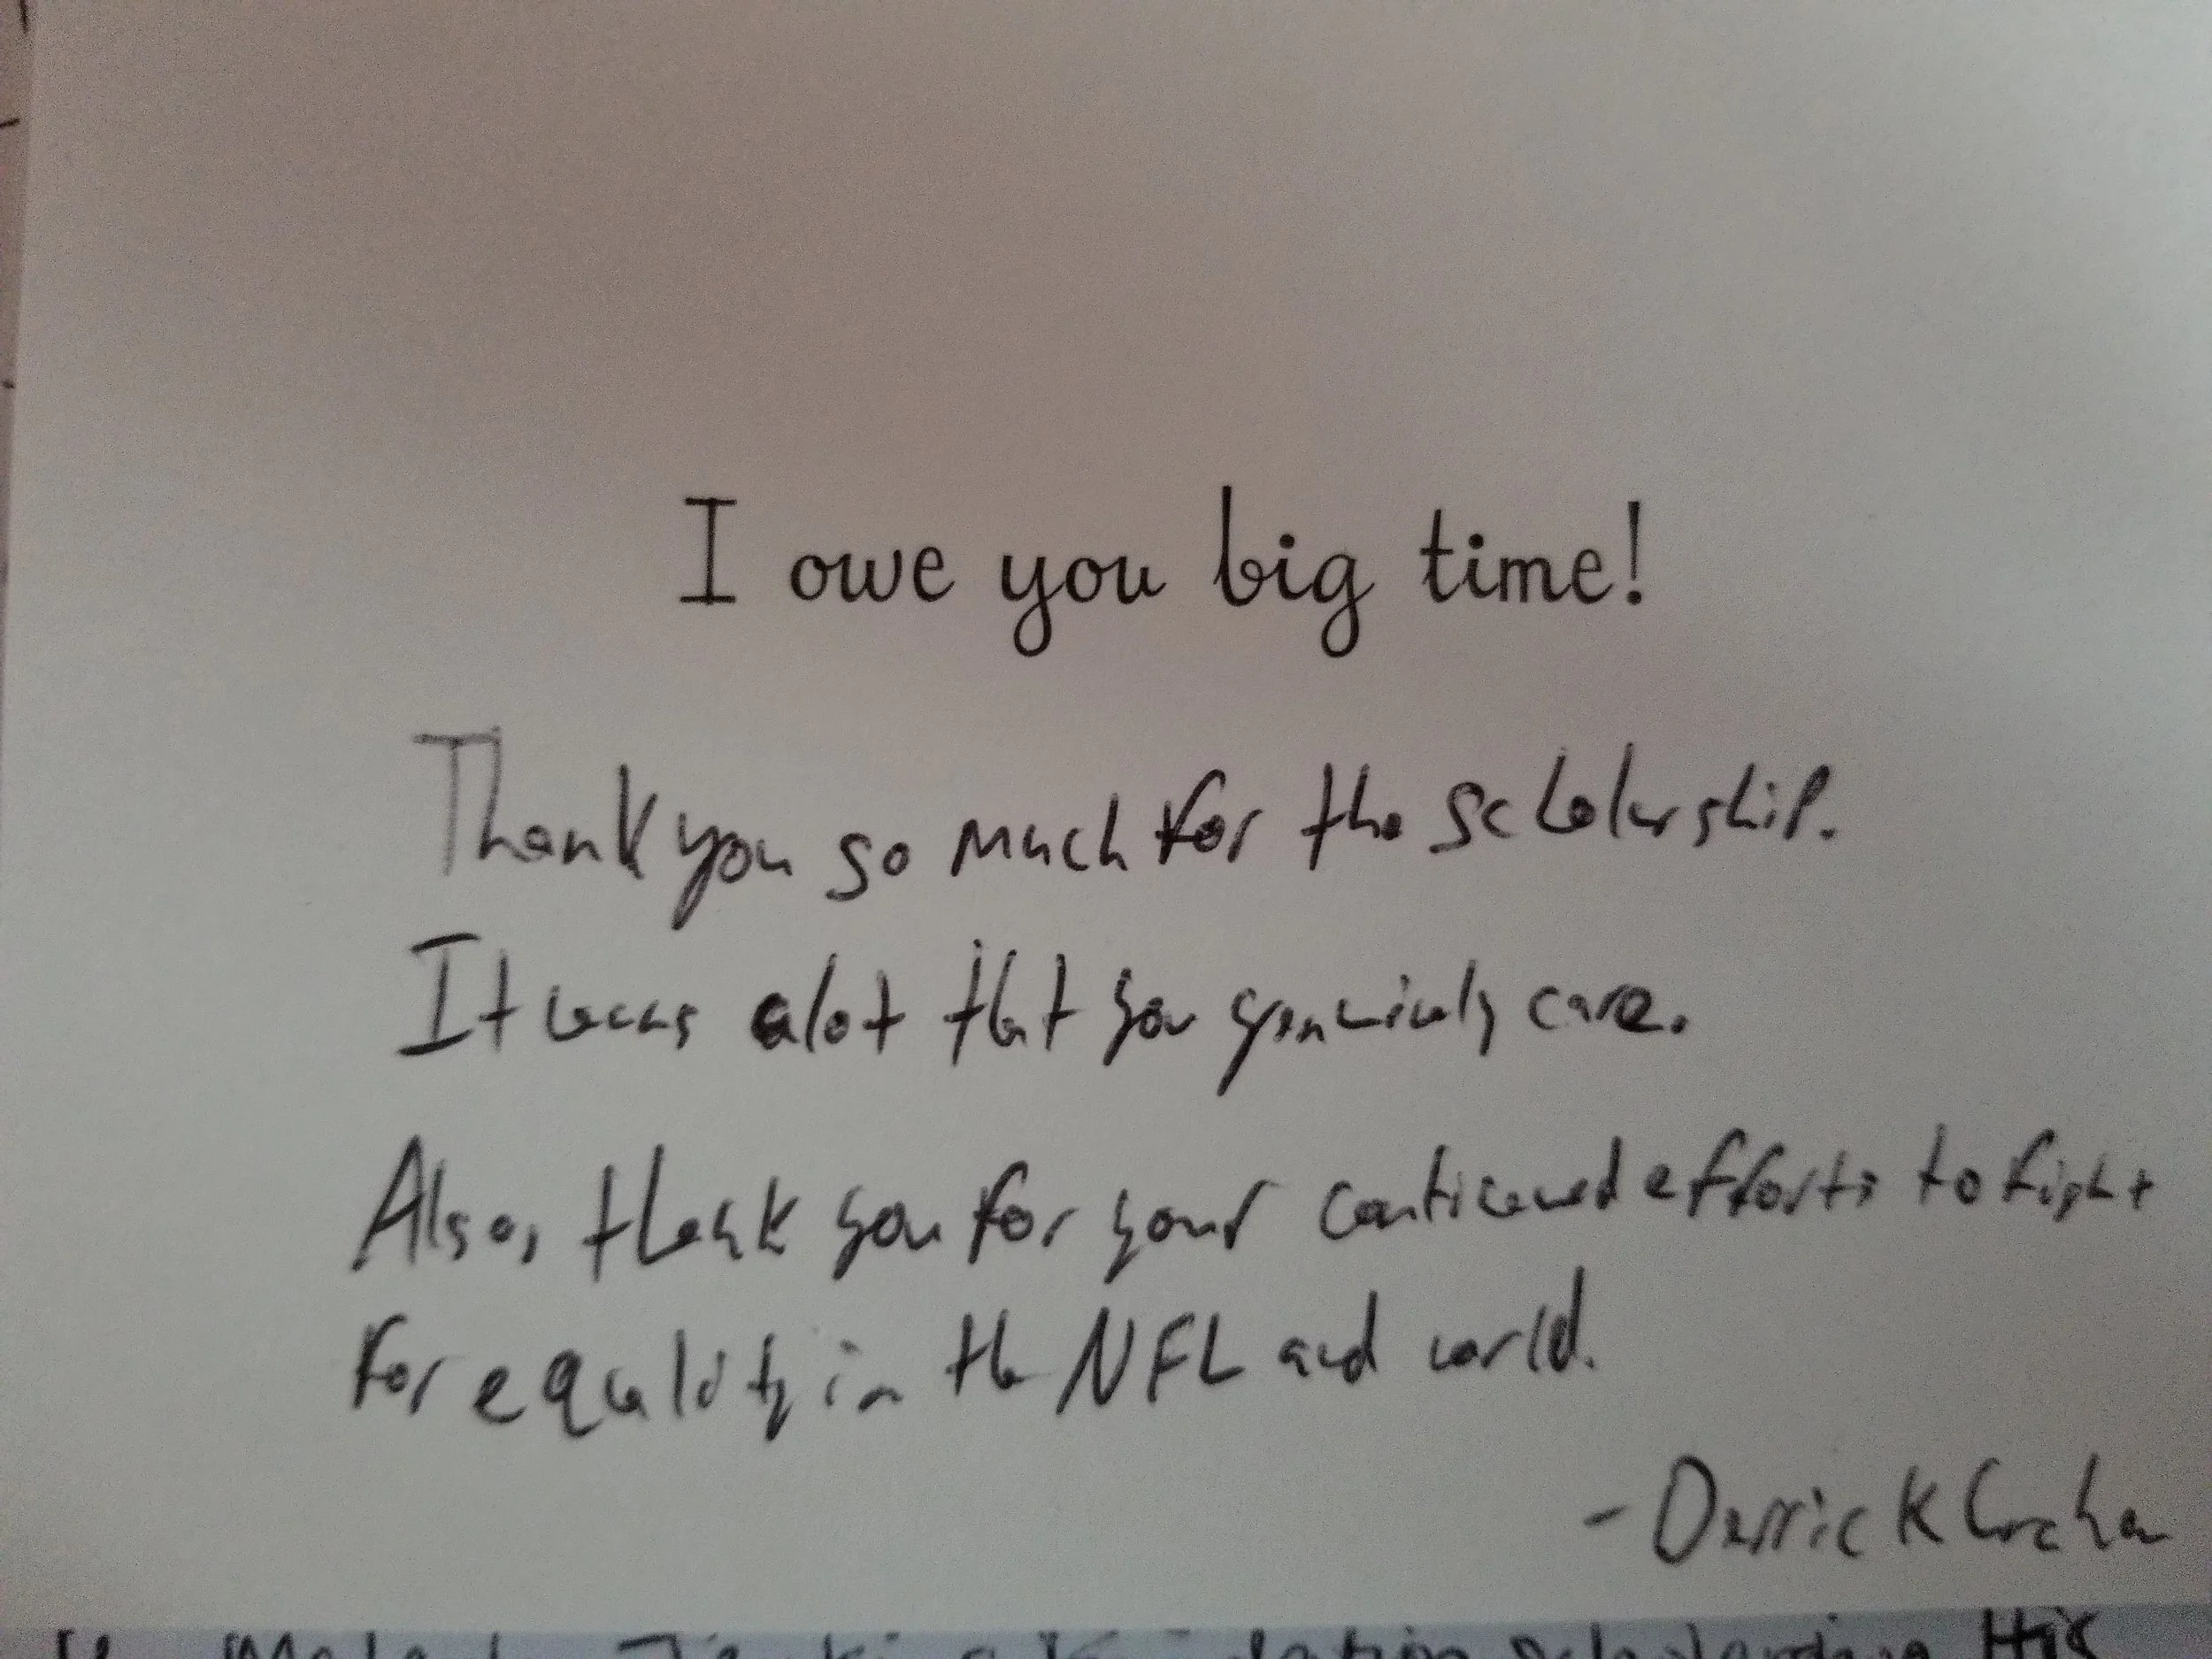 I owe you big time!
Thank you so much for the scholarship.
It means alot that you genuinely care.
Also, thank you for your continued efforts to fight
for equality in the NFL and world.
- Derrick